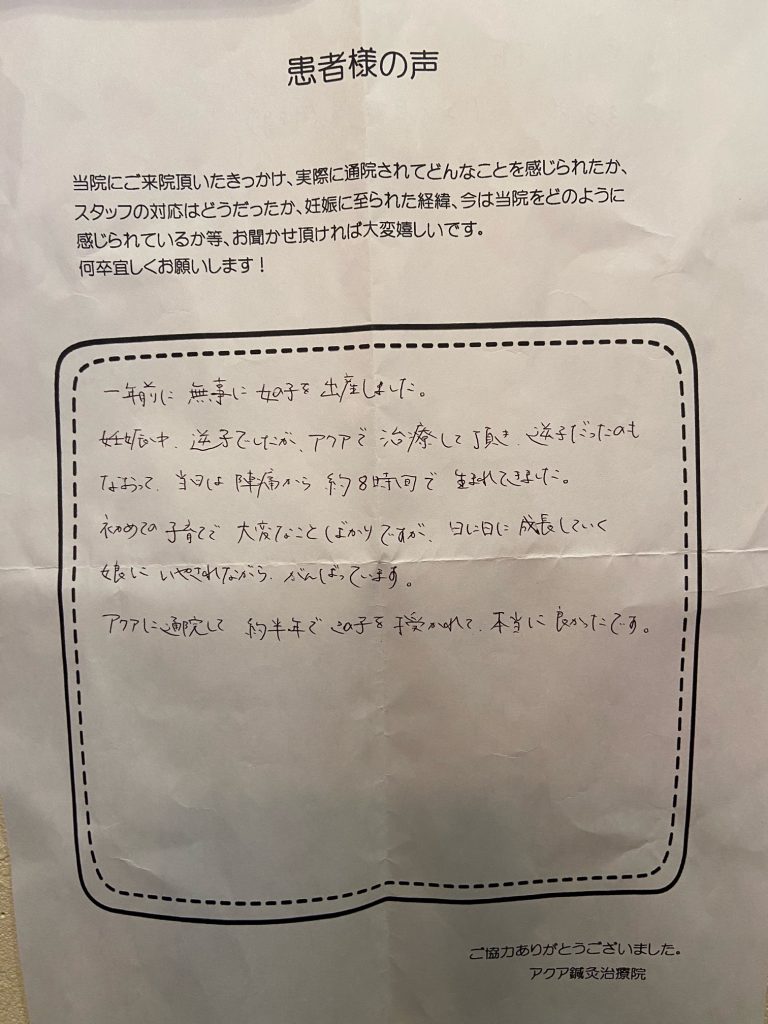 患者様の声
当院にご来院頂いたきっかけ、実際に通院されてどんなことを感じられたか、
スタッフの対応はどうだったか、妊娠に至られた経緯、今は当院をどのように
感じられているか等、お聞かせ頂ければ大変嬉しいです。
何卒宜しくお願いします！
一年前に 無事に 女の子を 出産しました。
妊娠中、逆子でしたが、アクアで 治療して頂き、逆子だったのも
なおって、当日は 陣痛から 約8時間で 生まれてきました。
初めての 子育てで 大変なことばかりですが、日に日に 成長していく
娘に いやされながら、がんばっています。
アクアに通院して 約半年で この子を 授かれて、本当に 良かったです。
ご協力ありがとうございました。
アクア鍼灸治療院